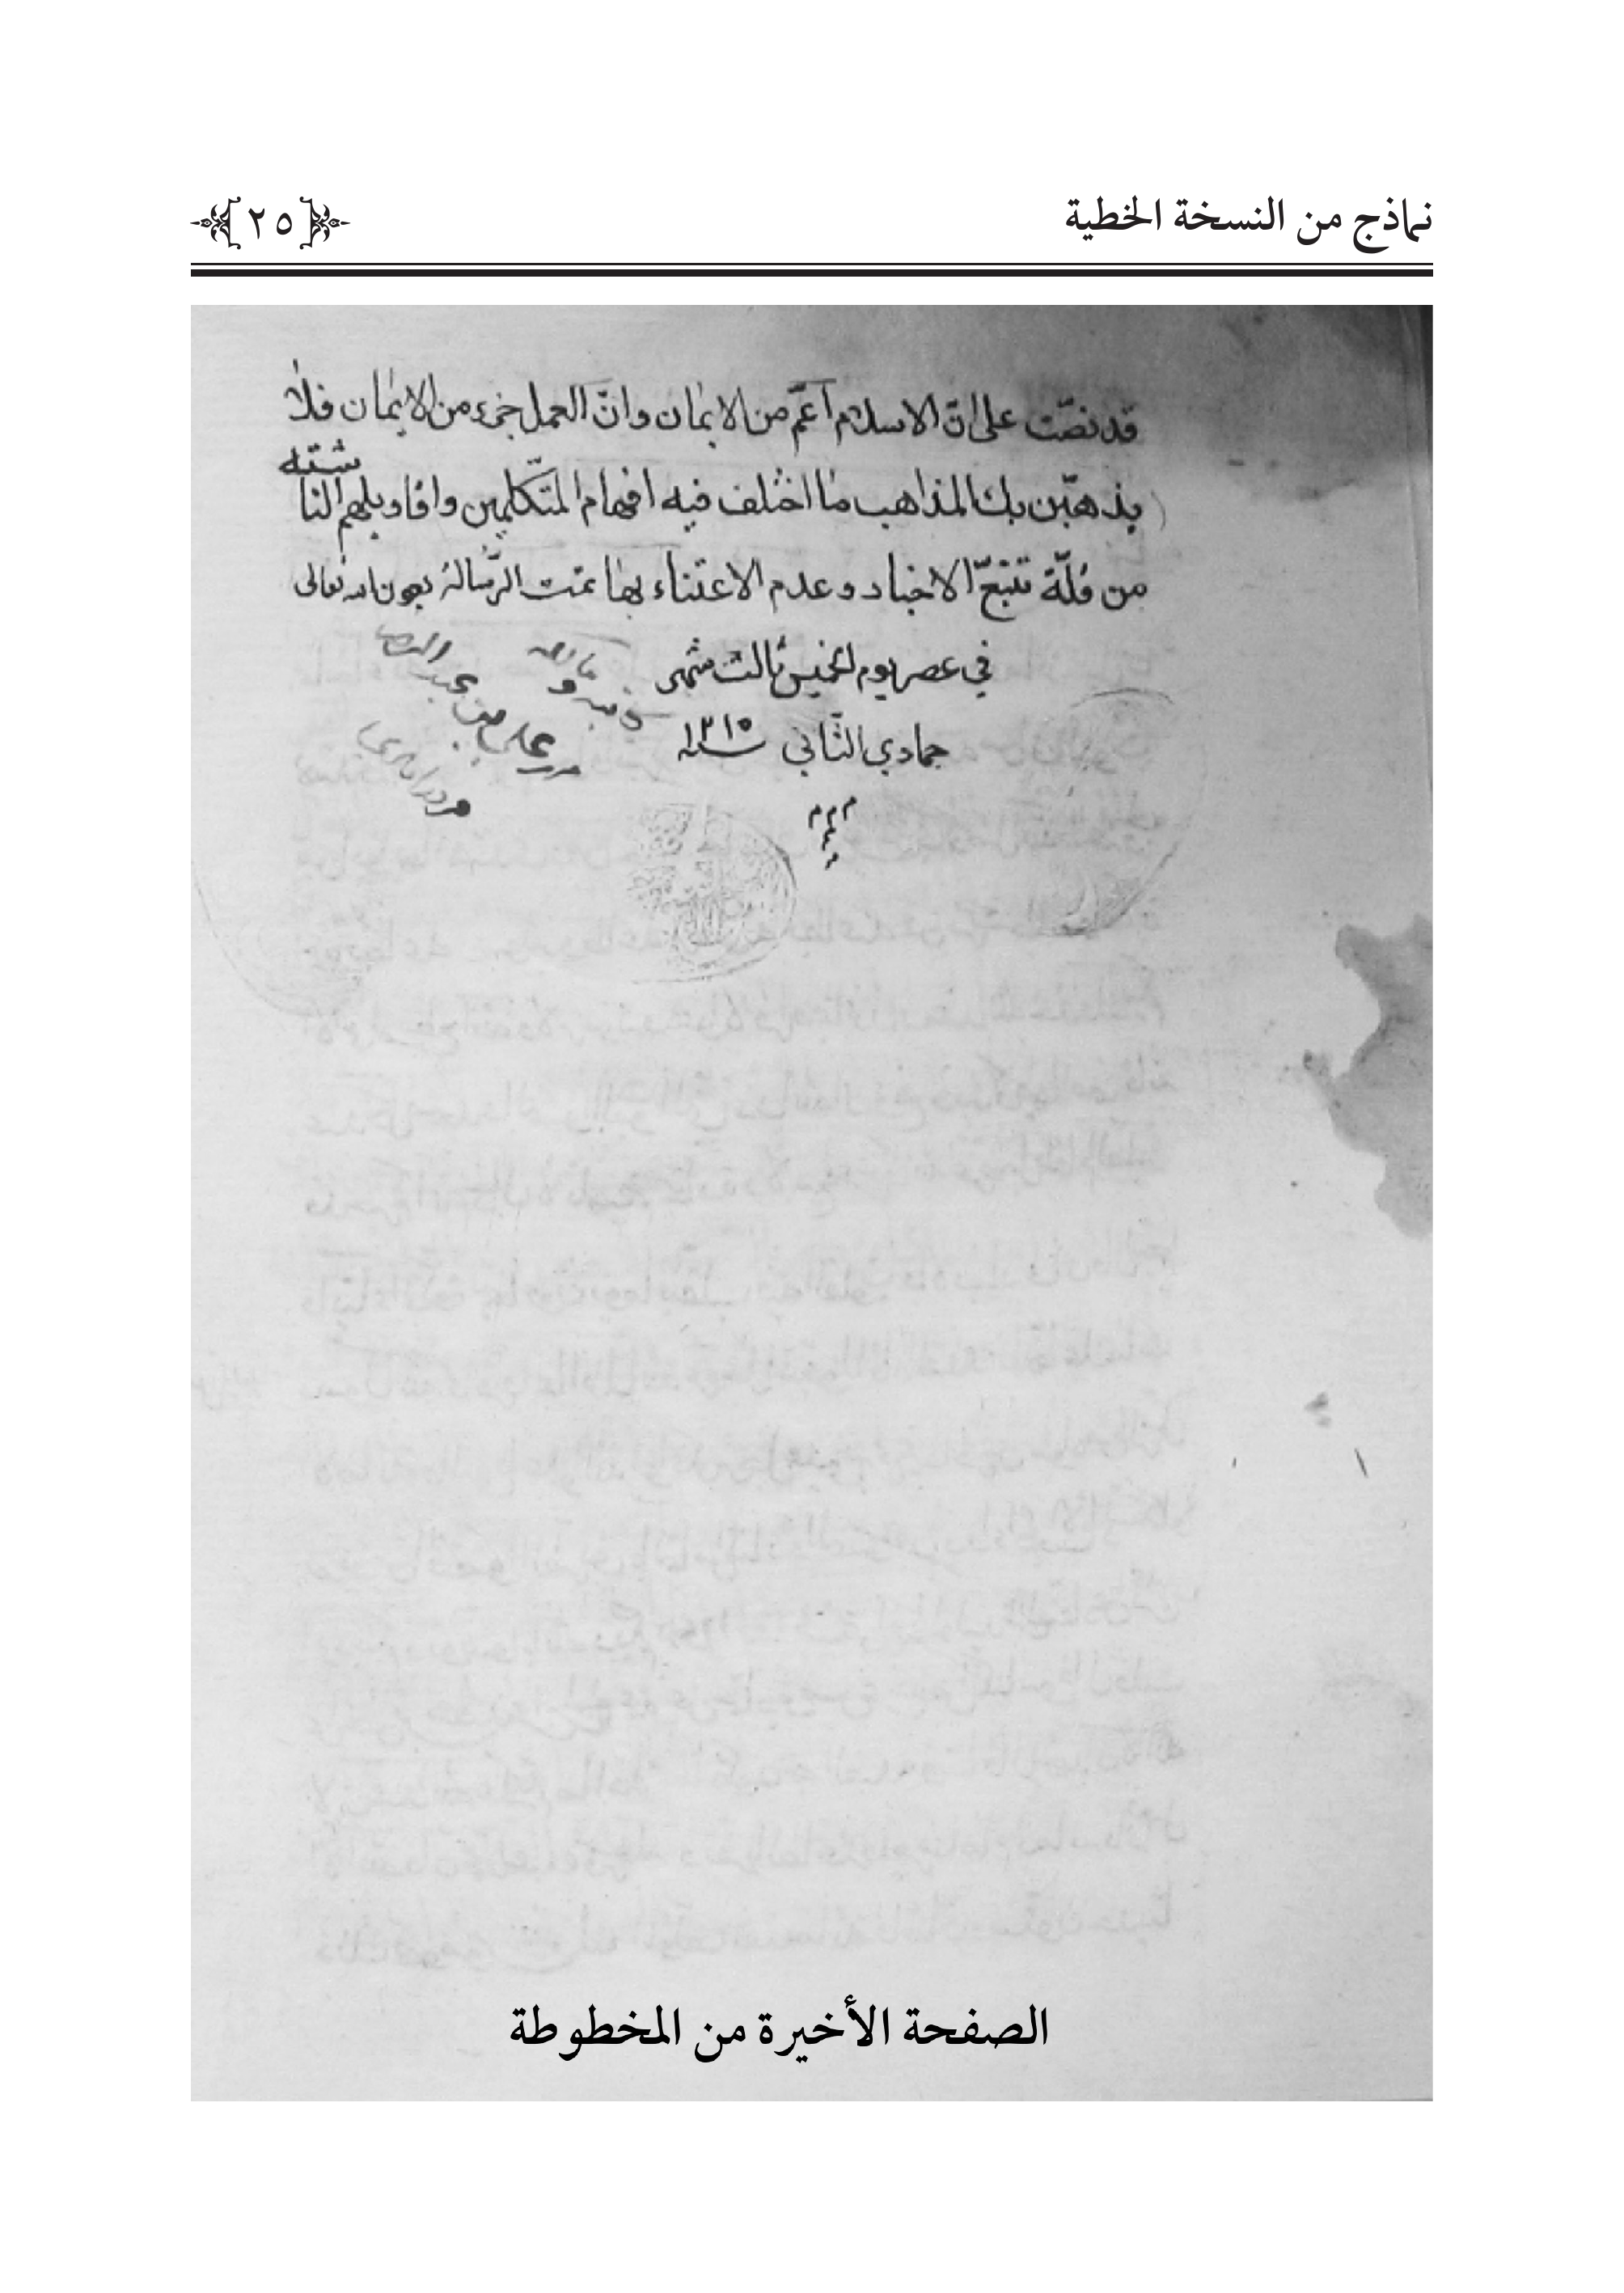 نماذج من النسخة الخطية
٢٥
قد نصّت على انّ الاسلام اعمّ من الايمان وانّ العمل جزء من الايمان فلا
يذهبّن بك المذاهب ما اختلف فيه افهام المتكلّمين واقاويلهم الناشئه
من قلّة تتبّع الاخبار وعدم الاعتناء بها تمّت الرّسالة بعون الله تعالى
في عصر يوم الخميس ثالث شهر
جمادي الثّاني سنه ١٣١٥
الصفحة الأخيرة من المخطوطة